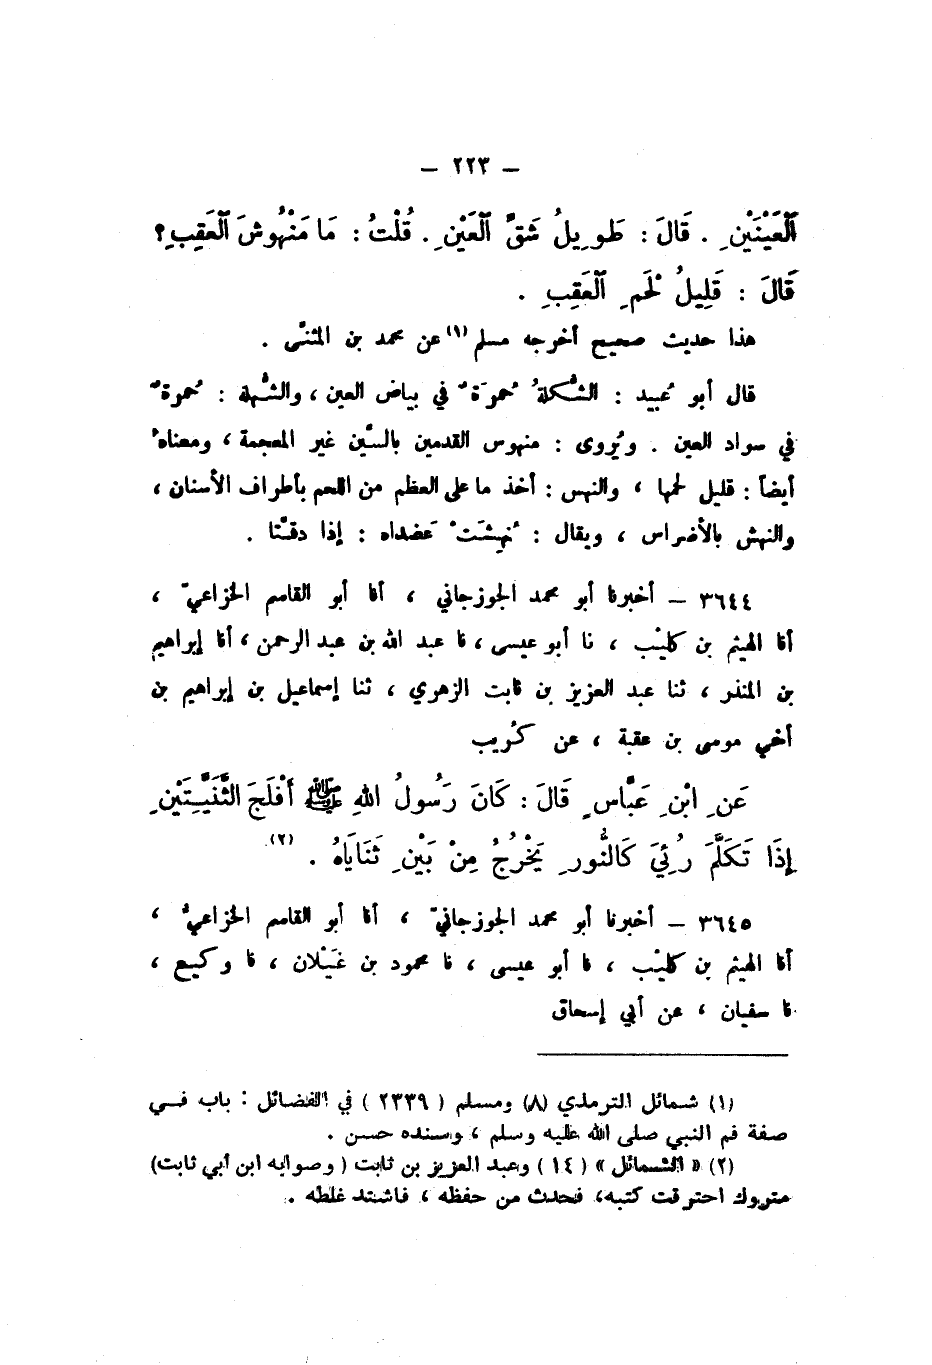 — ٢٢٣ —
ٱلْعَيْنَيْنِ . قَالَ : طَوِيلُ شَقِّ ٱلْعَيْنِ . قُلْتُ : مَا مَنْهُوشَ ٱلْعَقِبِ ؟
قَالَ : قَلِيلُ لَحْمِ ٱلْعَقِبِ .
هذا حديث صحيح أخرجه مسلم (١) عن محمد بن المثنّى .
قال أبو عُبيد : الشُّكلةُ حُمرَةٌ في بياض العين ، والشُّهلة : حُمرةٌ
في سواد العين . ويُروى : منهوس القدمين بالسِّين غير المعجمة ، ومعناهُ
أيضاً : قليل لحمها ، والنهس : أخذ ما على العظم من اللحم بأطراف الأسنان ،
والنهش بالأضراس ، ويقال : نُهِشَتْ عَضداه : إذا دقّتا .
٣٦٤٤ — أخبرنا أبو محمد الجوزجاني ، أنا أبو القاسم الخزاعيّ ،
أنا الهيثم بن كليْب ، نا أبو عيسى ، نا عبد الله بن عبد الرحمن ، أنا إبراهيم
بن المنذر ، ثنا عبد العزيز بن ثابت الزهوري ، ثنا إسماعيل بن إبراهيم بن
أخي موسى بن عقبة ، عن كُريب
عَنِ ابْنِ عَبَّاسٍ قَالَ : كَانَ رَسُولُ اللهِ ﷺ أَفْلَجَ الثَّنِيَّتَيْنِ
إِذَا تَكَلَّمَ رُئِيَ كَالنُّورِ يَخْرُجُ مِنْ بَيْنِ ثَنَايَاهُ . (٢)
٣٦٤٥ — أخبرنا أبو محمد الجوزجانيّ ، أنا أبو القاسم الخزاعيُّ ،
أنا الهيثم بن كليْب ، نا أبو عيسى ، نا محمود بن غَيْلان ، نا وكيع ،
نا سفيان ، عن أبي إسحاق
(١) شمائل الترمذي (٨) ومسلم ( ٢٣٣٩ ) في الفضائل : باب فسي
صفة فم النبي صلى الله عليه وسلم ، وسنده حسن .
(٢) « الشمائل » ( ١٤ ) وعبد العزيز بن ثابت ( وصوابه ابن أبي ثابت)
متروك احترقت كتبه، فحدث من حفظه ، فاشتد غلطه .